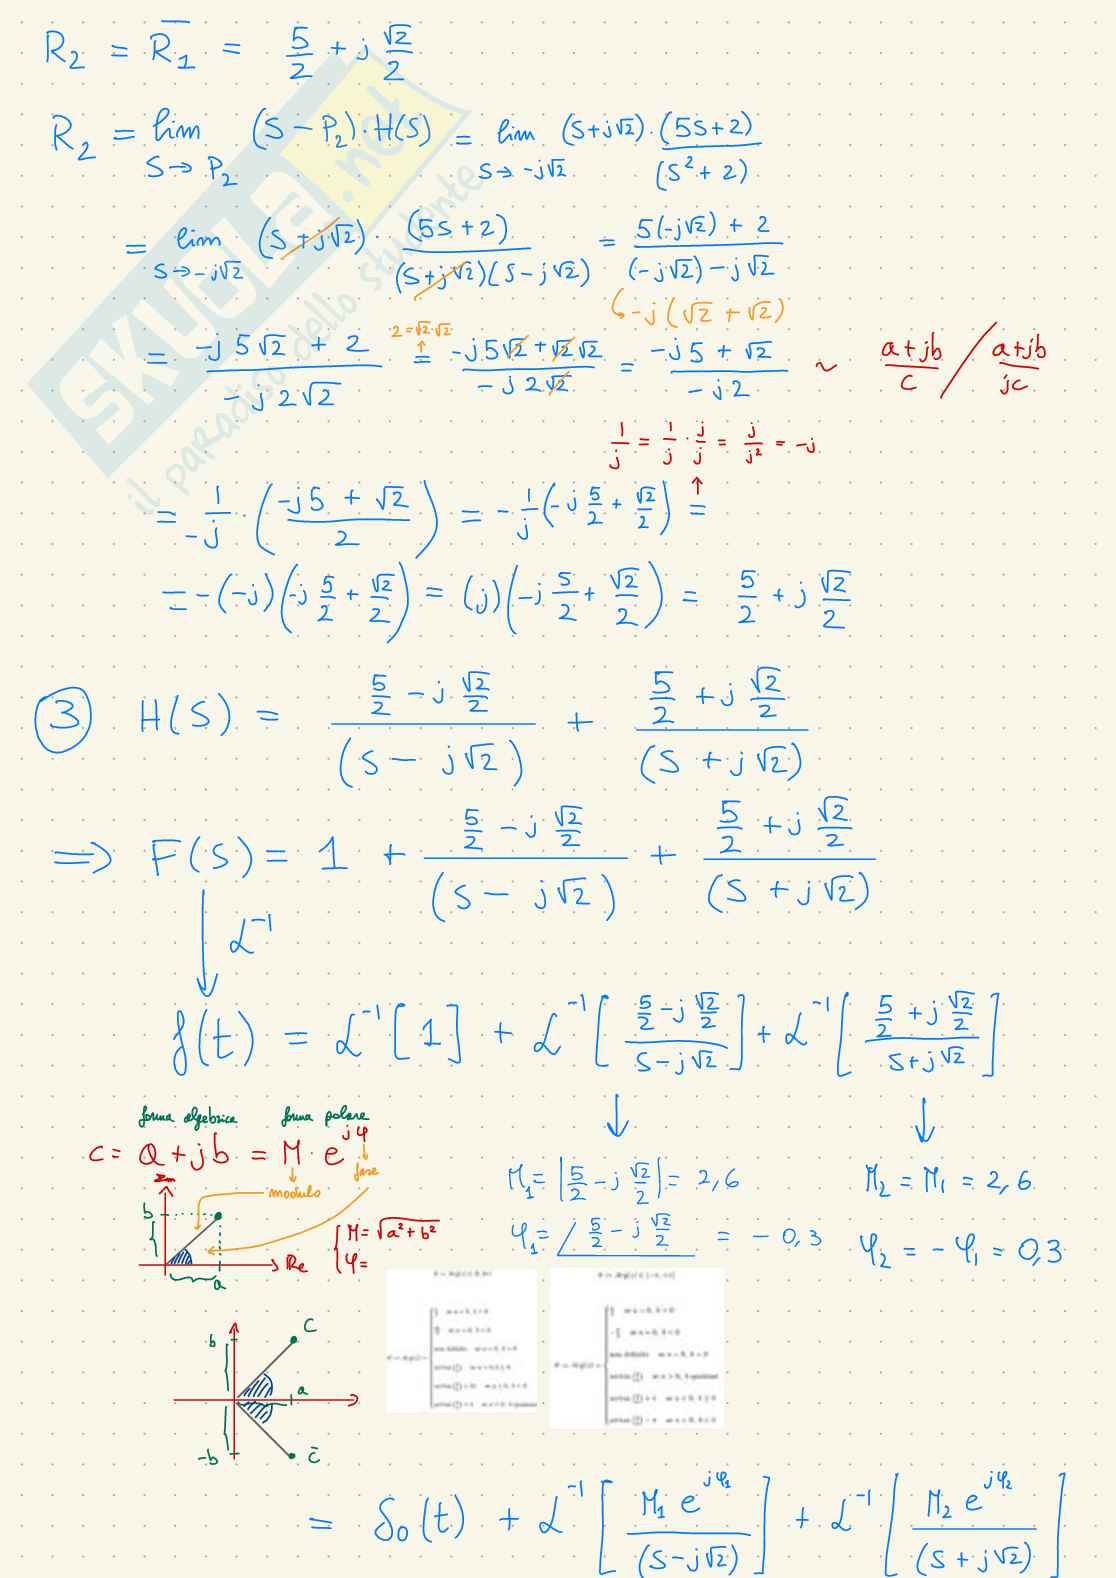 R₂ = R̄₁ = 5/2 + j √2/2
R₂ = lim_{S→P₂} (S − P₂)·H(S) = lim_{S→−j√2} (S+j√2)·(5S+2)/(S²+2)
= lim_{S→−j√2} (S+j√2)·(5S+2)/((S+j√2)(S−j√2)) = (5(−j√2)+2)/((−j√2)−j√2)
−j(√2+√2)
2=√2·√2
= (−j5√2+2)/(−j2√2) = (−j5√2+√2√2)/(−j2√2) = (−j5+√2)/(−j2) ~ (a+jb)/c / (a+jb)/(jc)
1/j = 1/j · j/j = j/j² = −j
= 1/(−j) · ((−j5+√2)/2) = −1/j (−j 5/2 + √2/2) =
= −(−j)(−j 5/2 + √2/2) = (j)(−j 5/2 + √2/2) = 5/2 + j √2/2
③ H(S) = (5/2 − j √2/2)/(S − j√2) + (5/2 + j √2/2)/(S + j√2)
⇒ F(S) = 1 + (5/2 − j √2/2)/(S − j√2) + (5/2 + j √2/2)/(S + j√2)
ℒ⁻¹
f(t) = ℒ⁻¹[1] + ℒ⁻¹[(5/2 − j √2/2)/(S−j√2)] + ℒ⁻¹[(5/2 + j √2/2)/(S+j√2)]
forma algebrica forma polare
c = a+jb = M·e^{jφ}
modulo fase
Im
b
a
Re
{ M = √(a²+b²)
φ =
M₁ = |5/2 − j √2/2| = 2,6
M₂ = M₁ = 2,6
φ₁ = ∠ 5/2 − j √2/2 = −0,3
φ₂ = −φ₁ = 0,3
b
c
a
−b
c̄
= δ₀(t) + ℒ⁻¹[M₁ e^{jφ₁}/(S−j√2)] + ℒ⁻¹[M₂ e^{jφ₂}/(S+j√2)]
SKUOLA.net
il paradiso dello studente